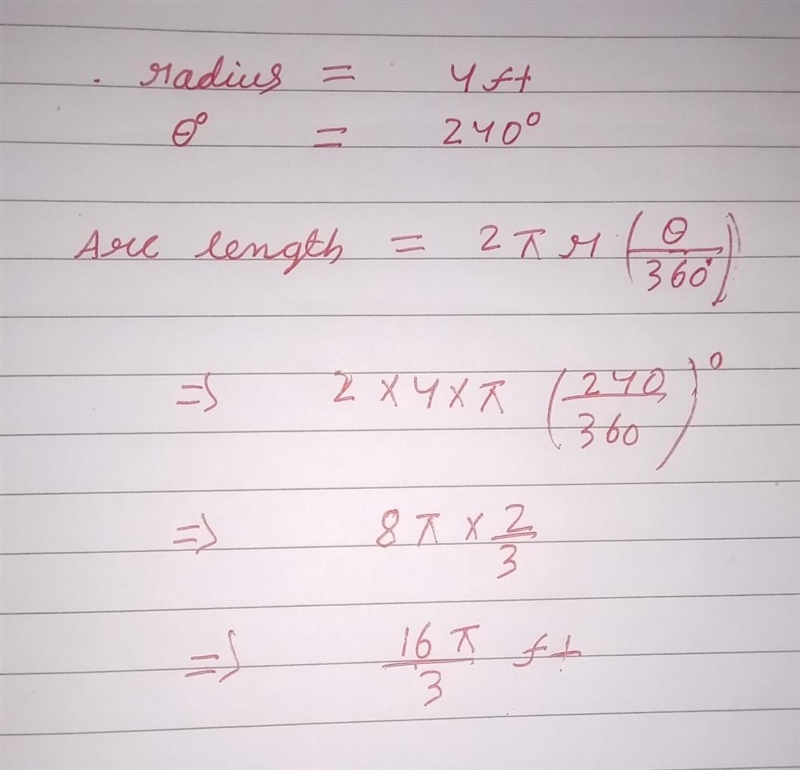 . radius = 4ft
θ° = 240°
Arc length = 2πr(θ/360°)
⇒ 2×4×π (240/360)°
⇒ 8π × 2/3
⇒ 16π/3 ft